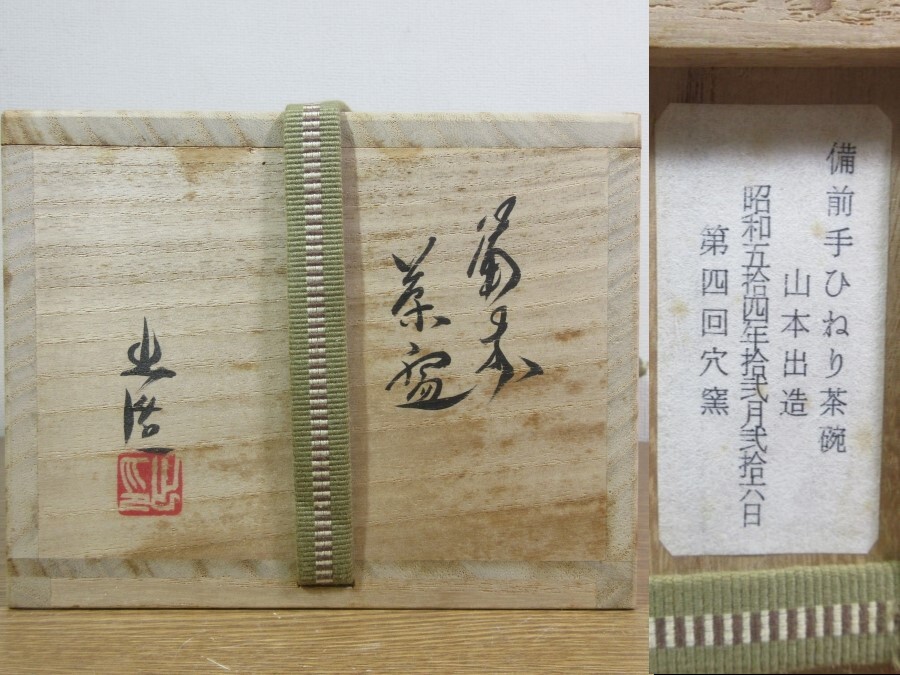 備前
茶盌
出造
備前手ひねり茶碗
山本出造
昭和五拾四年拾弐月弐拾六日
第四回穴窯